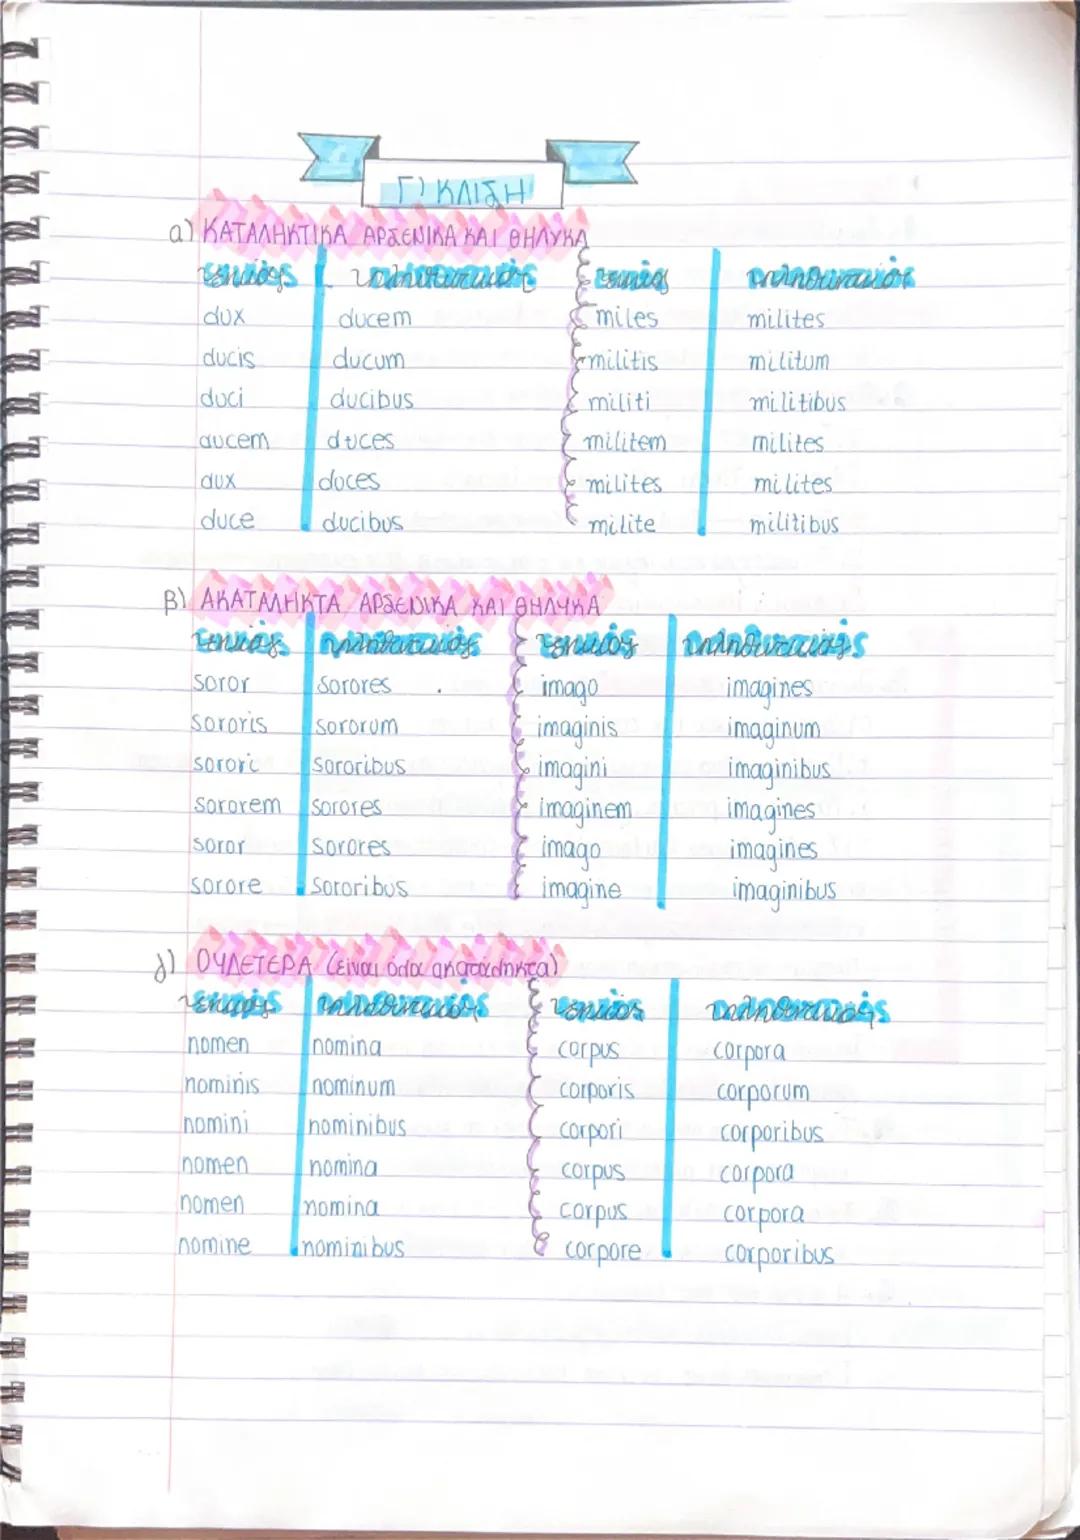 Γ) ΚΛΙΣΗ
α) ΚΑΤΑΛΗΚΤΙΚΑ ΑΡΣΕΝΙΚΑ ΚΑΙ ΘΗΛΥΚΑ
ενικός πληθυντικός ενικός πληθυντικός
dux ducem miles milites
ducis ducum militis militum
duci ducibus militi militibus
ducem duces militem milites
dux duces milites milites
duce ducibus milite militibus
β) ΑΚΑΤΑΛΗΚΤΑ ΑΡΣΕΝΙΚΑ ΚΑΙ ΘΗΛΥΚΑ
ενικός πληθυντικός ενικός πληθυντικός
soror sorores imago imagines
sororis sororum imaginis imaginum
sorori sororibus imagini imaginibus
sororem sorores imaginem imagines
soror sorores imago imagines
sorore sororibus imagine imaginibus
γ) ΟΥΔΕΤΕΡΑ (είναι όλα ακατάληκτα)
ενικός πληθυντικός ενικός πληθυντικός
nomen nomina corpus corpora
nominis nominum corporis corporum
nomini nominibus corpori corporibus
nomen nomina corpus corpora
nomen nomina corpus corpora
nomine nominibus corpore corporibus